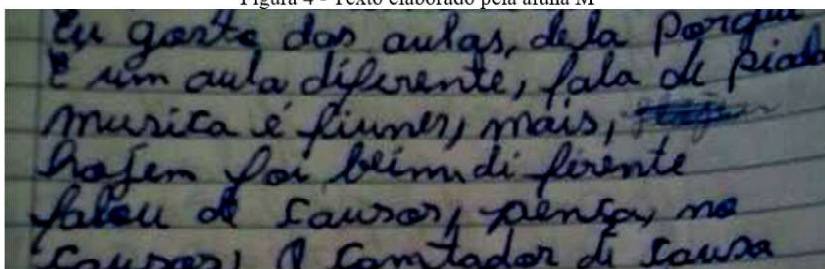 Figura 4 - Texto elaborado pela aluna M
Eu gosto das aulas, dela Porque
E um aula diferente, fala de piada
musica é fiumes, mais,
hojem foi beim di ferente
falou de causos, pensa, no
causos, O Comtador de causa